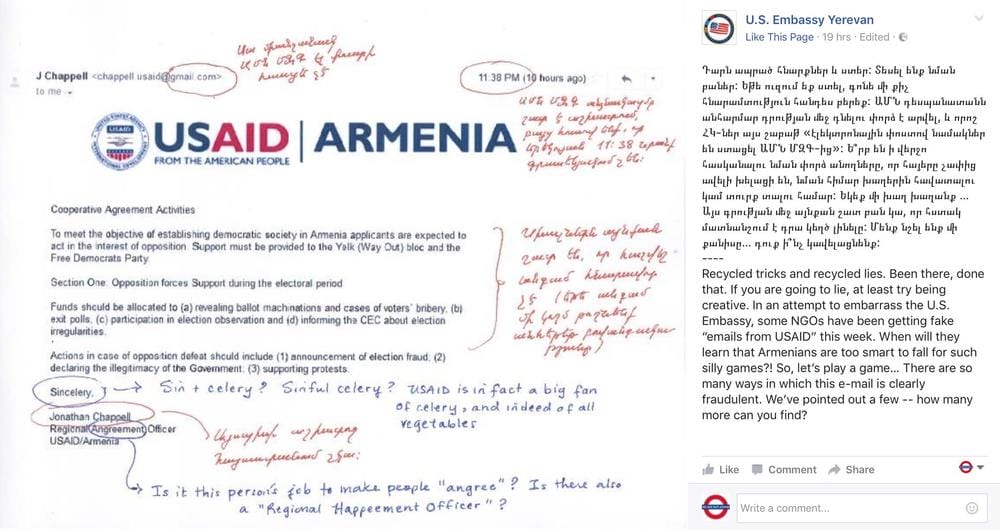 J Chappell <chappell usaid@gmail.com>
to me
11:38 PM (10 hours ago)
USAID
USAID | ARMENIA
FROM THE AMERICAN PEOPLE
Cooperative Agreement Activities
To meet the objective of establishing democratic society in Armenia applicants are expected to
act in the interest of opposition. Support must be provided to the Yelk (Way Out) bloc and the
Free Democrats Party.
Section One: Opposition forces Support during the electoral period
Funds should be allocated to (a) revealing ballot machinations and cases of voters' bribery, (b)
exit polls, (c) participation in election observation and (d) informing the CEC about election
irregularities.
Actions in case of opposition defeat should include (1) announcement of election fraud; (2)
declaring the illegitimacy of the Government; (3) supporting protests.
Sincelery,
Sin + celery? Sinful celery? USAID is in fact a big fan
of celery, and indeed of all
vegetables
Jonathan Chappell
Regional Angreement Officer
USAID/Armenia
Is it this person's job to make people "angree"? Is there also
a "Regional Happeement Officer"?
U.S. Embassy Yerevan
Like This Page · 19 hrs · Edited ·
Դարն ապրած հնարքներ և ստեր: Տեսել ենք նման
բաներ: Եթե ուզում եք ստել, գոնե մի քիչ
հնարամտություն հանդես բերեք: ԱՄՆ դեսպանատանն
անհարմար դրության մեջ դնելու փորձ է արվել, և որոշ
ՀԿ-ներ այս շաբաթ «էլեկտրոնային փոստով նամակներ
են ստացել ԱՄՆ ՄԶԳ-ից»: Ե՞րբ են ի վերջո
հասկանալու նման փորձ անողները, որ հայերը չափից
ավելի խելացի են, նման հիմար խաղերին հավատալու
կամ տուրք տալու համար: Եկեք մի խաղ խաղանք ...
Այս գրության մեջ այնքան շատ բան կա, որ հստակ
մատնանշում է դրա կեղծ լինելը: Մենք նշել ենք մի
քանիսը... դուք ի՞նչ կավելացնենք:
----
Recycled tricks and recycled lies. Been there, done
that. If you are going to lie, at least try being
creative. In an attempt to embarrass the U.S.
Embassy, some NGOs have been getting fake
“emails from USAID” this week. When will they
learn that Armenians are too smart to fall for such
silly games?! So, let’s play a game… There are so
many ways in which this e-mail is clearly
fraudulent. We’ve pointed out a few -- how many
more can you find?
Like Comment Share
Write a comment...